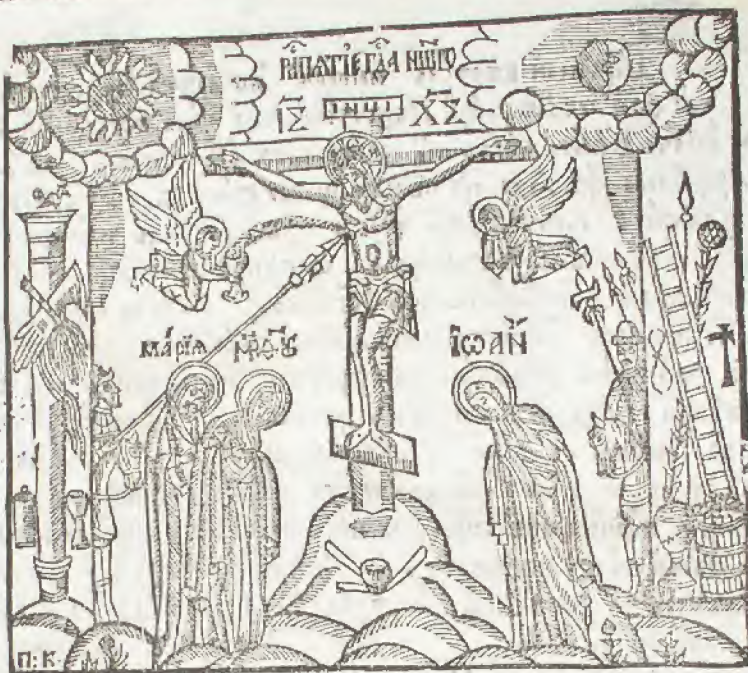 РАПѦТІЕ ГДА НШГО
ІС ІНЦІ ХС
МАРІѦ МРѲУ ІѠАН
П: К